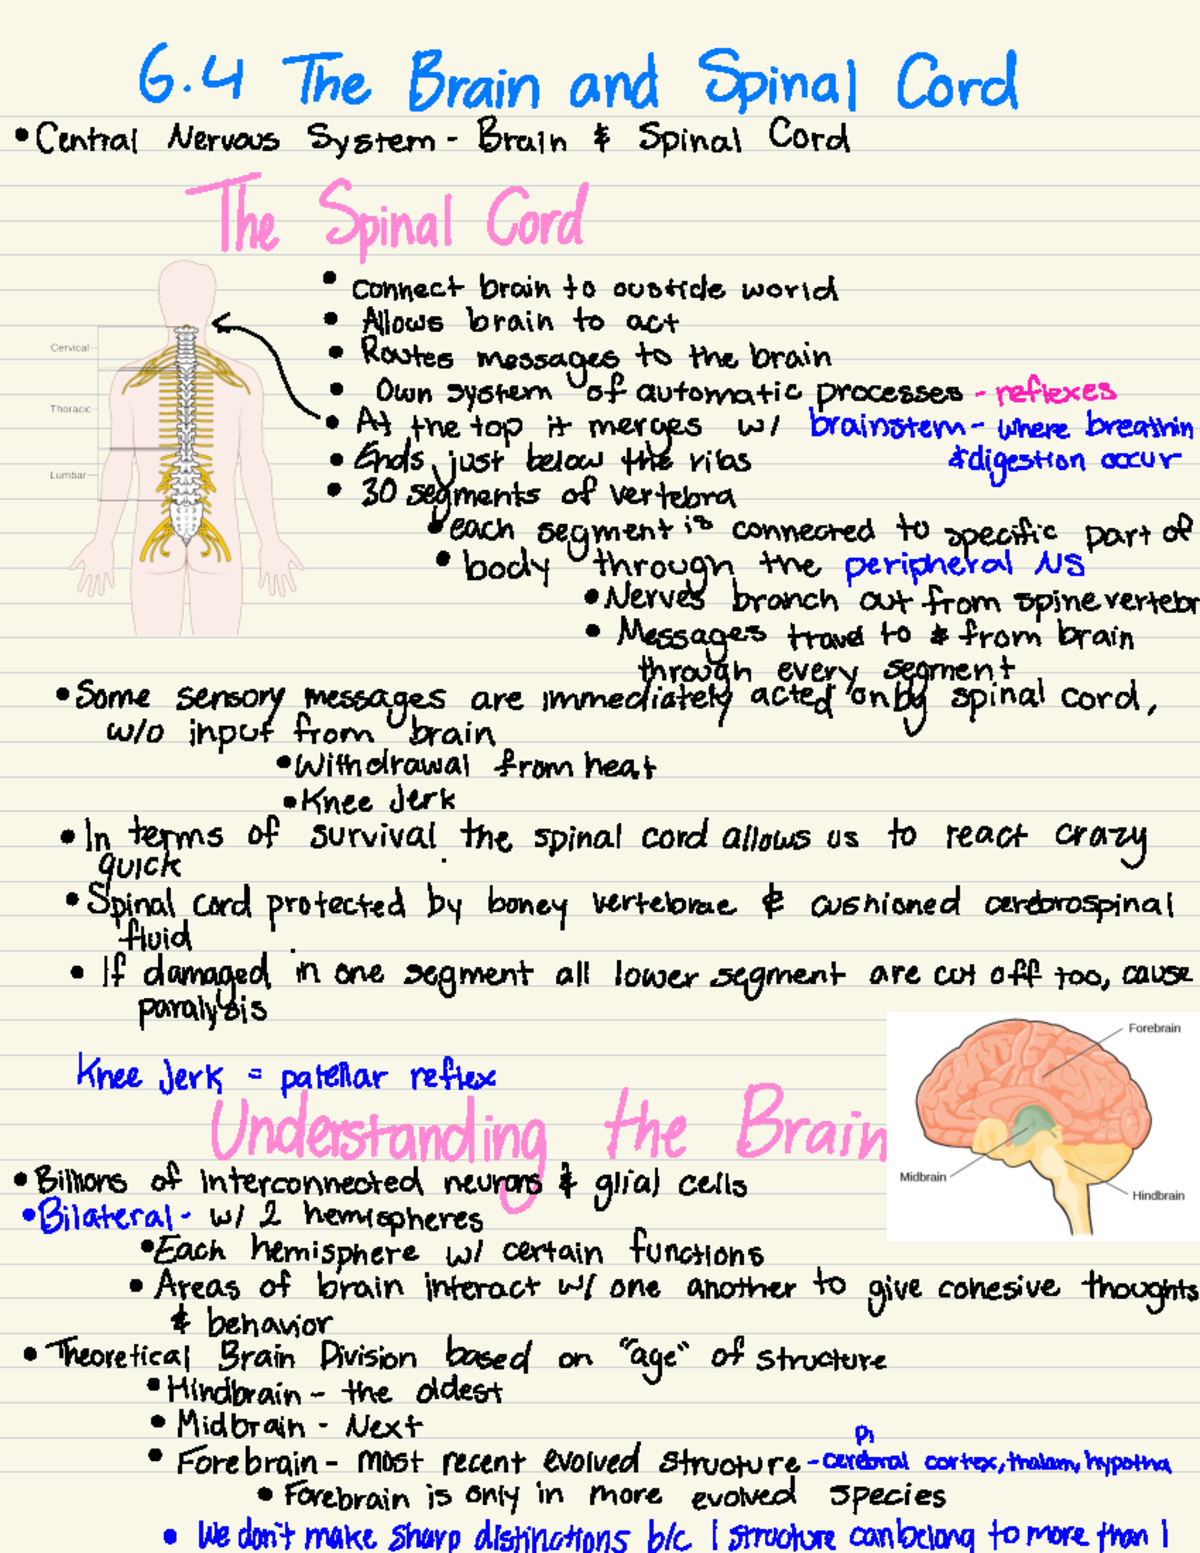 6.4 The Brain and Spinal Cord
• Central Nervous System - Brain & Spinal Cord
The Spinal Cord
• connect brain to oustide world
• Allows brain to act
• Routes messages to the brain
• Own system of automatic processes - reflexes
• At the top it merges w/ brainstem - where breathin
& digestion occur
• Ends just below the ribs
• 30 segments of vertebra
• each segment is connected to specific part of
• body through the peripheral NS
• Nerves branch out from spine vertebr
• Messages travel to & from brain
through every segment
Cervical
Thoracic
Lumbar
• Some sensory messages are immediately acted on by spinal cord,
w/o input from brain
• Withdrawal from heat
• Knee Jerk
• In terms of survival the spinal cord allows us to react crazy
quick
• Spinal cord protected by boney vertebrae & cushioned cerebrospinal
fluid
• If damaged in one segment all lower segment are cut off too, cause
paralysis
Knee Jerk = patellar reflex
Understanding the Brain
Forebrain
Midbrain
Hindbrain
• Billions of interconnected neurons & glial cells
• Bilateral - w/ 2 hemispheres
• Each hemisphere w/ certain functions
• Areas of brain interact w/ one another to give cohesive thoughts
& behavior
• Theoretical Brain Division based on "age" of structure
• Hindbrain - the oldest
• Midbrain - Next
• Forebrain - most recent evolved structure - cerebral cortex, thalam, hypotha
• Forebrain is only in more evolved species
• We don't make sharp distinctions b/c 1 structure can belong to more than 1